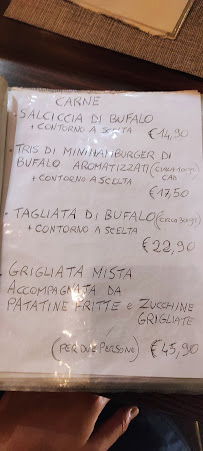 CARNE
- SALCICCIA DI BUFALO
+ CONTORNO A SCELTA
€14,90
- TRIS DI MINIHAMBURGER DI
BUFALO AROMATIZZATI
+ CONTORNO A SCELTA
€17,50
- TAGLIATA DI BUFALO
+ CONTORNO A SCELTA
€22,90
- GRIGLIATA MISTA
ACCOMPAGNATA DA
PATATINE FRITTE e ZUCCHINE
GRIGLIATE
(PER DUE PERSONE) €45,90